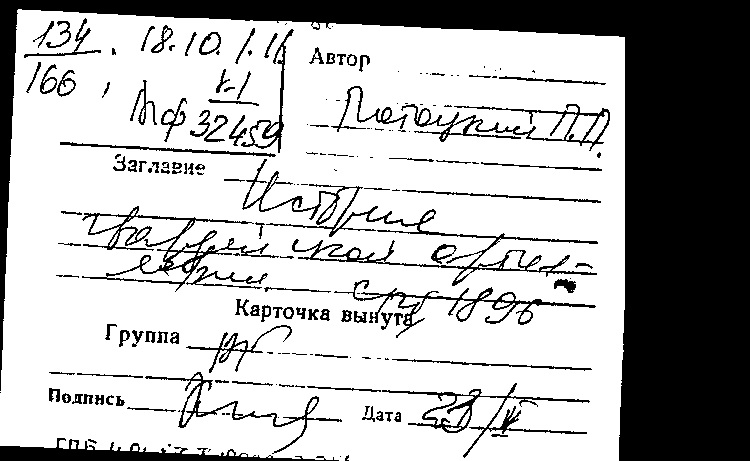 134 , 18.10.1.11
166 ,
1-1
Мф 32459
Автор
Потоцкий П.П.
Заглавие История
гвардейской артил-
лерии. СПб 1896
Карточка вынута
Группа
Подпись
Дата 28/IV